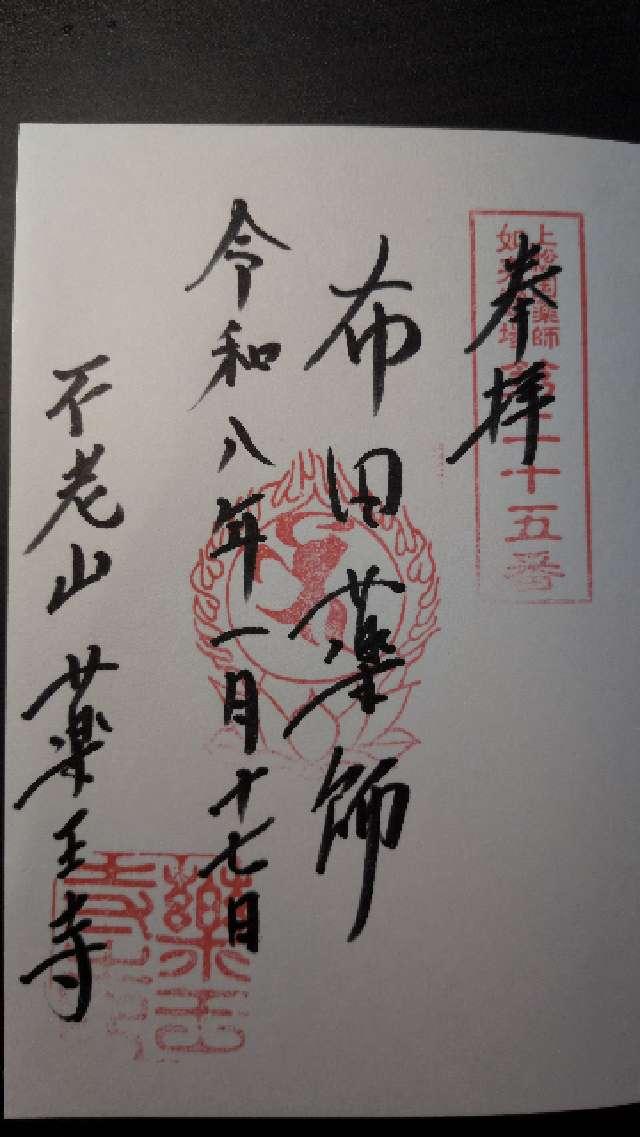 奉拝
上総国薬師
如来霊場
第三十五番
布田薬師
令和八年一月十七日
不老山薬王寺
薬王
寺